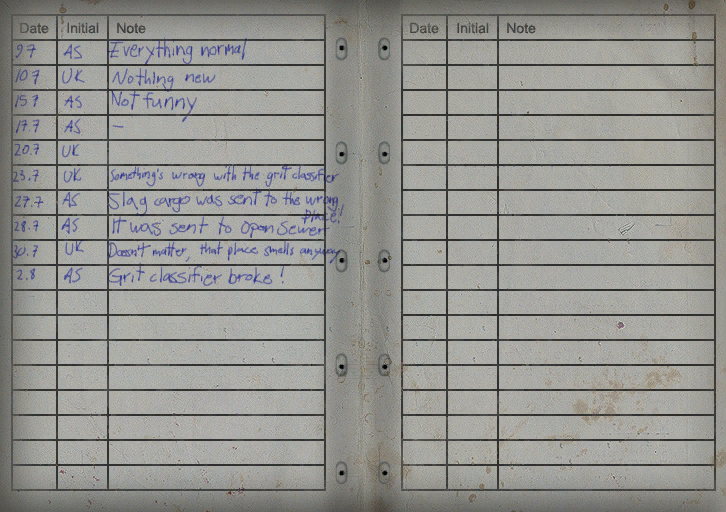 Date Initial Note
9.7 AS Everything normal
10.7 UK Nothing new
15.7 AS Not funny
17.7 AS –
20.7 UK
23.7 UK Something's wrong with the grit classifier
27.7 AS Slag cargo was sent to the wrong
place!
28.7 AS It was sent to Open Sewer
30.7 UK Doesn't matter, that place smells anyway
2.8 AS Grit classifier broke!
Date Initial Note